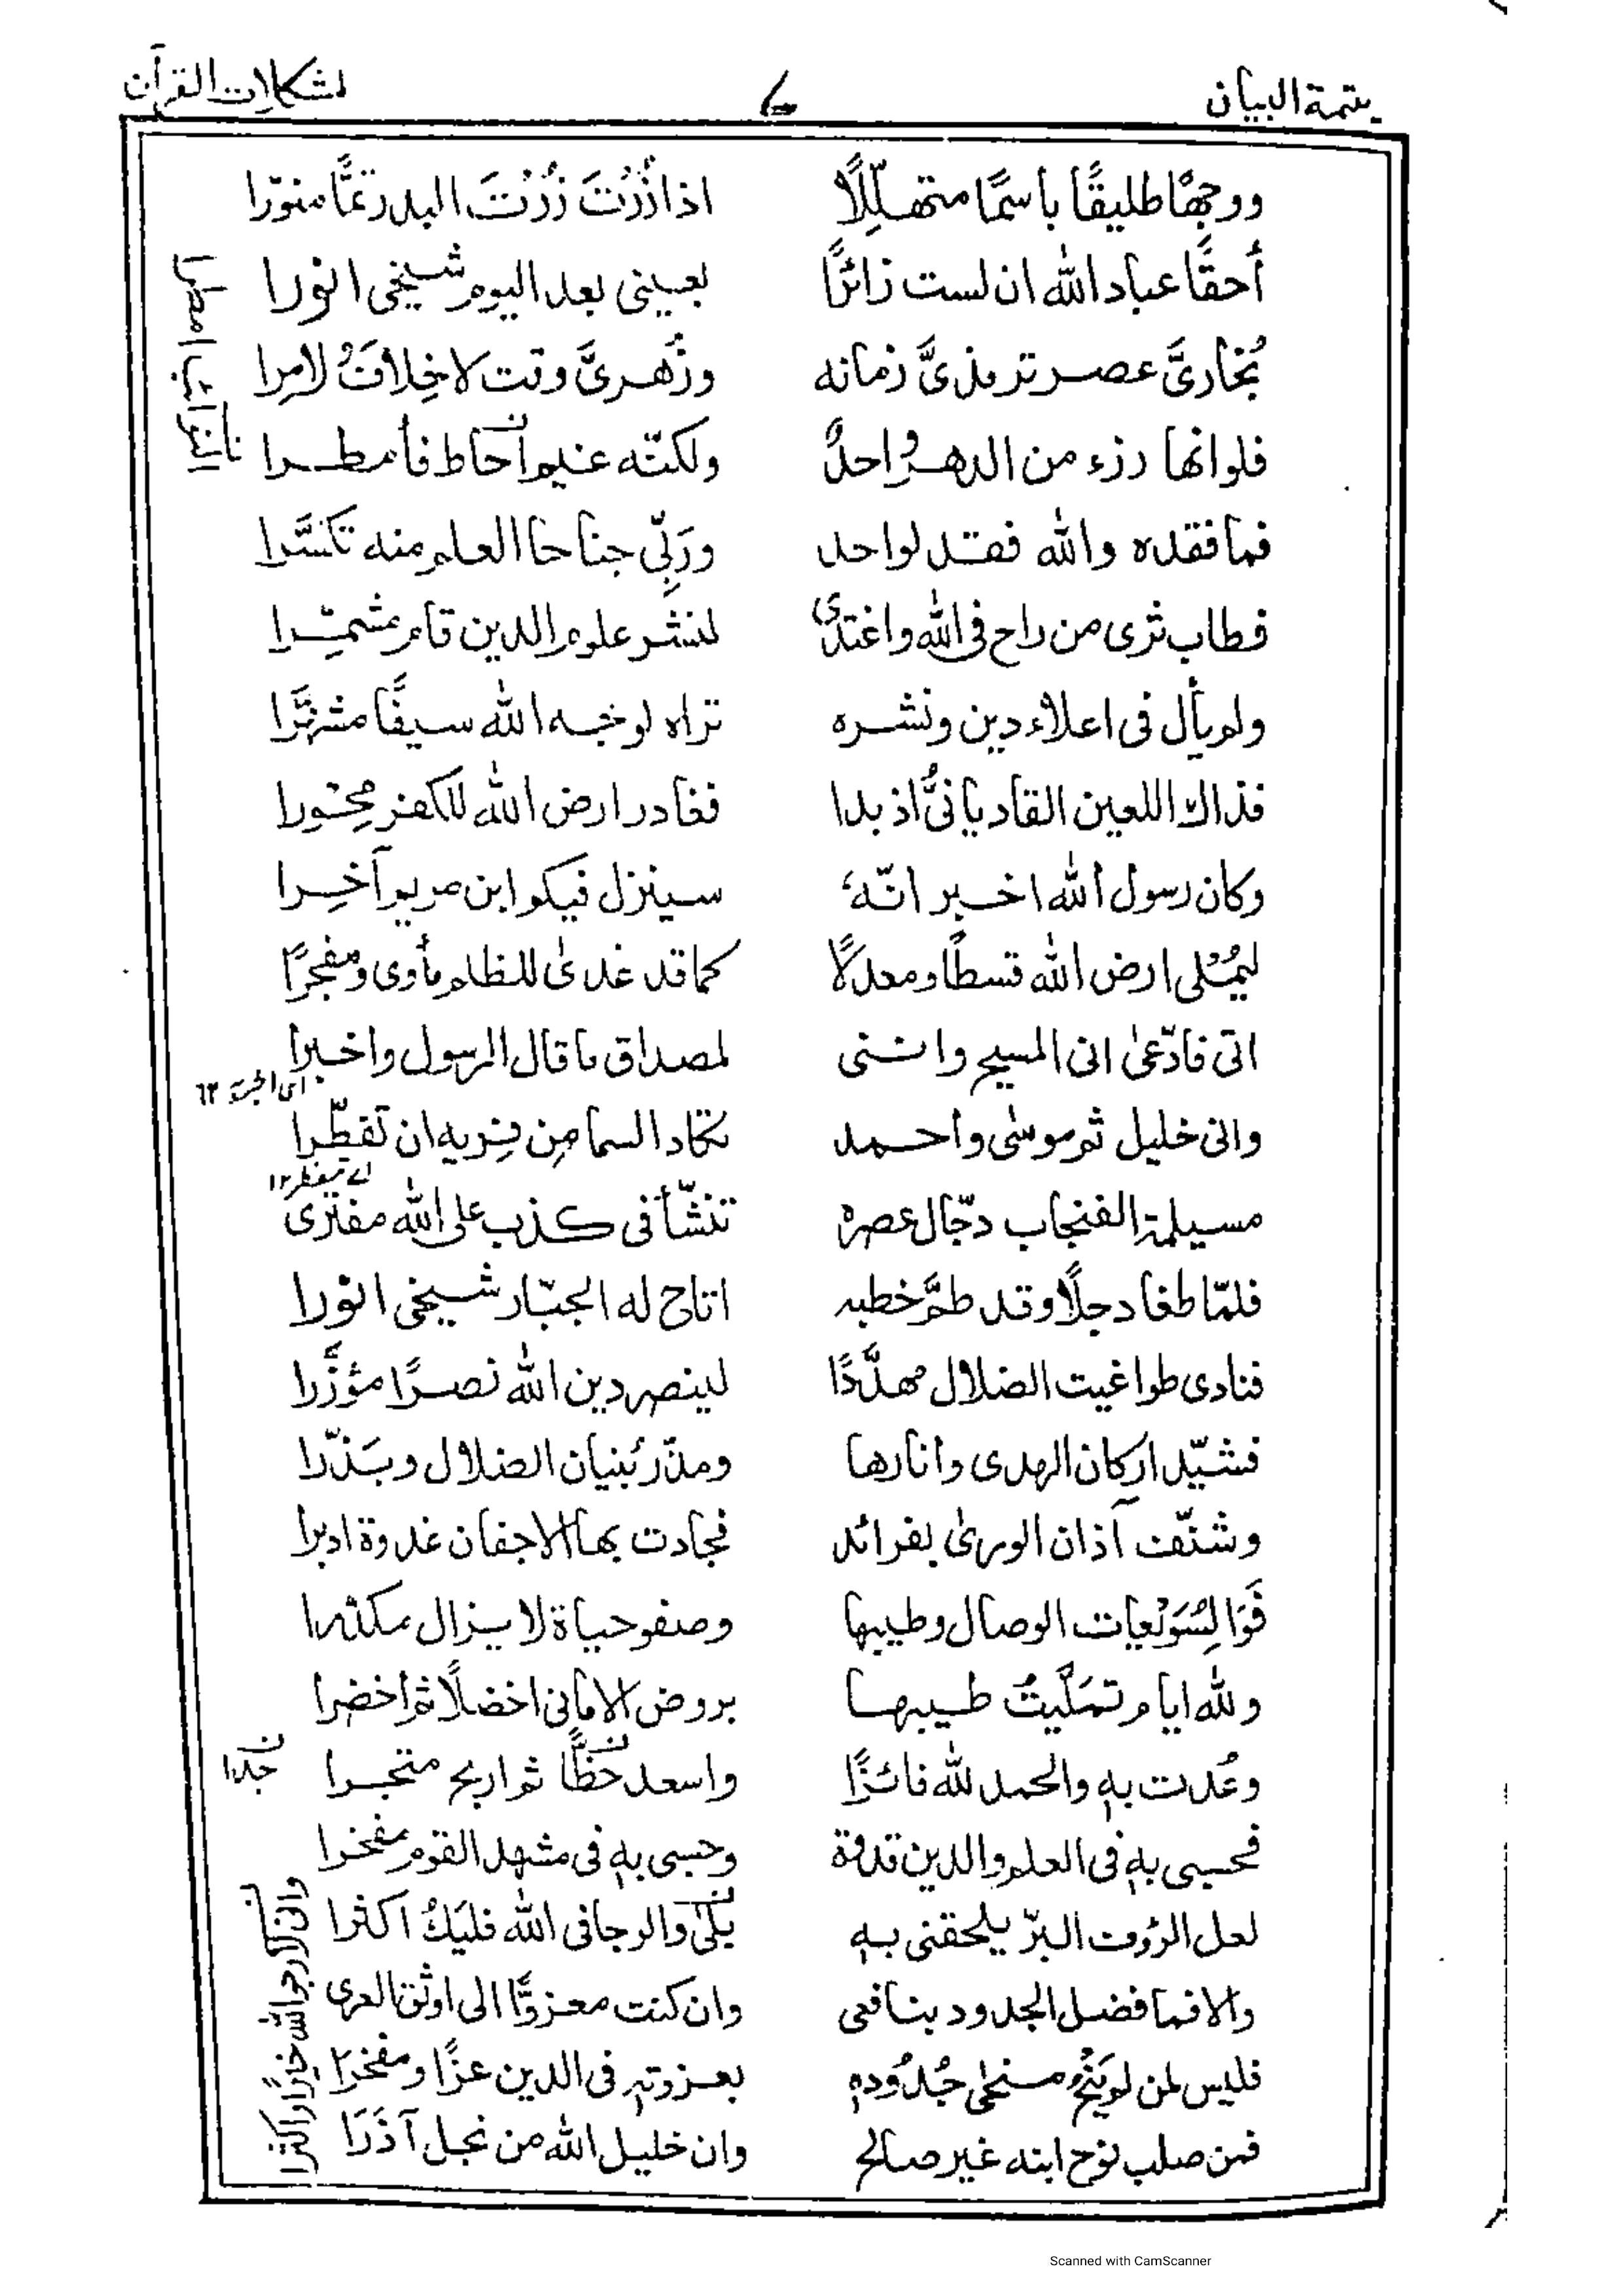 يتمة البيان ٤ لمشكلات القرآن
ووجهًا طليقًا باسمًا متهلّلًا اذا زُرْتَ زُرْتَ البدر تمًّا منوّرا
أحقًا عباد الله ان لست زائرًا بعيني بعد اليوم شيخي انورا
بُخاريَّ عصر ترمذيَّ زمانه وزُهريَّ وقت لا خِلافَ لامِرا
فلو انها رزء من الدهر واحدٌ ولكنّه غيم احاط فأمطرا
فما فقده والله فقد لواحد ورَبِّي جناحا العلم منه تكسَّرا
فطاب ثرى من راح في الله واغتدى لنشر علوم الدين قام مشمّرا
ولم يأل في اعلاء دين ونشره تراه لوجه الله سيفًا مشهَّرا
فذاك اللعين القاديانيُّ اذ بدا فغادر ارض الله للكفر مِحْورا
وكان رسول الله اخبر انّه سينزل فيكم ابن مريم آخِرا
ليُمْلى ارض الله قسطًا ومعدلًا كما قد غدىٰ للظلم مأوى ومفجرًا
اتى فادّعىٰ اني المسيح وانني لمصداق ما قال الرسول واخبرا
واني خليل ثم موسىٰ واحمد تكاد السما مِن فِريه ان تفطّرا
اے تتفطر١٢
مسيلمة الفنجاب دجّال عصره تنشّأ في كذب على الله مفترى
فلمّا طغا دجلًا وقد طمَّ خطبه اتاح له الجبّار شيخي انورا
فنادى طواغيت الضلال مهدَّدًا لينصر دين الله نصرًا مؤزَّرا
فشيّد اركان الهدى وانارها ومذّر بُنيان الضلال وبَذّرا
وشنّف آذان الورىٰ بفرائد فجادت بها الاجفان غدوة ادبرا
فَوَا لِسُوَيْعات الوصال وطيبها وصفو حياة لا يزال مكثرا
ولله ايام تملّيتُ طيبها بروض الاماني اخضلًا ثم اخضرا
وعُدت به والحمد لله فائزًا واسعد حظًّا ثم اربح متجرا
جَدّا
فحسبي به في العلم والدين قدوة وحسبي به في مشهد القوم مفخرا
لعل الرؤف البرّ يلحقني به بلىٰ والرجا في الله فليَكُ اكثرا
والا فما فضل الجدود بنافعي وان كنت معزوًّا الى اوثق العرى
فليس لمن لم يَنْحُ منحىٰ جُدُوده بعزوته في الدين عزًّا ومفخرًا
فمن صلب نوح ابنه غير صالح وان خليل الله من نجل آذَرَا
وانّي لأرجو الله خيرًا واكثرا
Scanned with CamScanner